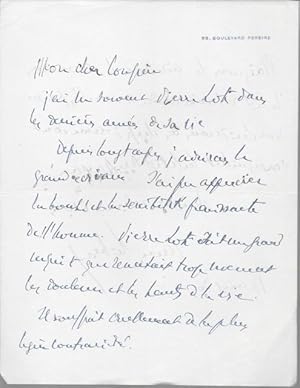 BOULEVARD PEREIRE
Mon cher Confrère
j'ai vu souvent Pierre Loti dans
les dernières années de sa vie
Depuis longtemps j'admirais le
grand écrivain J'ai pu apprécier
la bonté et la sensibilité
de l'homme. Pierre Loti était un grand
inquiet que tropmement
les douleurs et les de la vie.
Il souffrait cruellement de la plus
légère contrariété.